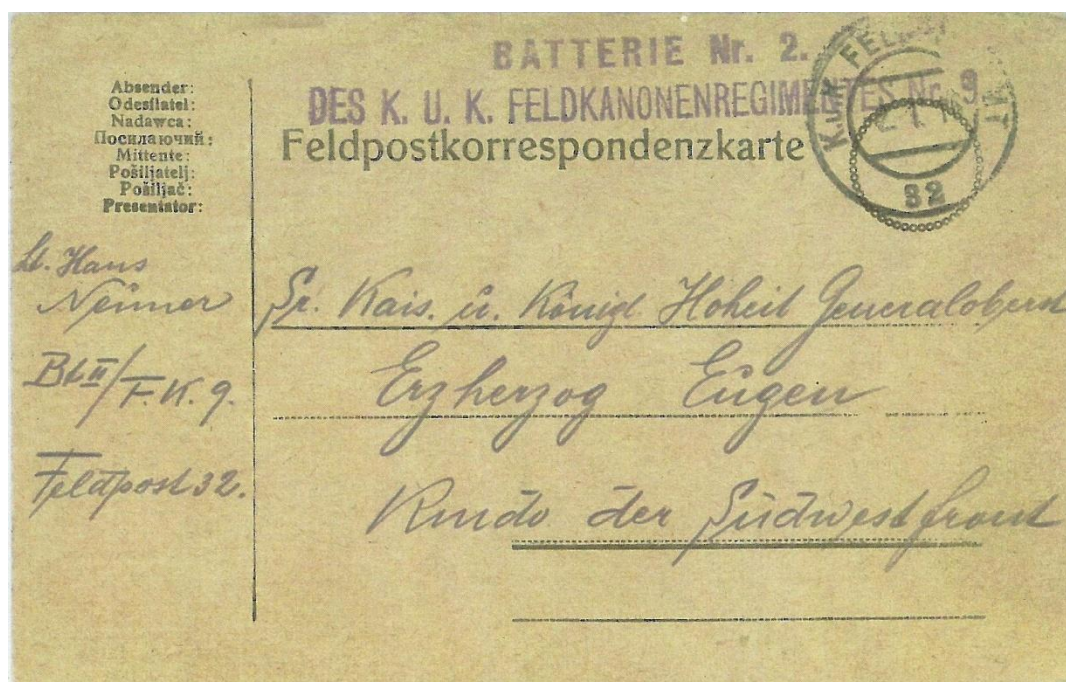 BATTERIE Nr. 2.
DES K. U. K. FELDKANONENREGIMENTES Nr. 9
Feldpostkorrespondenzkarte
K.u.K. FELDPOSTAMT
32
Absender:
Odesílatel:
Nadawca:
Посилаючий:
Mittente:
Pošiljatelj:
Pošiljač:
Presentator:
Lt. Hans
F.K. 9.
Feldpost 32.
Sr. Kais. u. Königl Hoheit Generaloberst
Erzherzog Eugen
Kmdo der Südwestfront